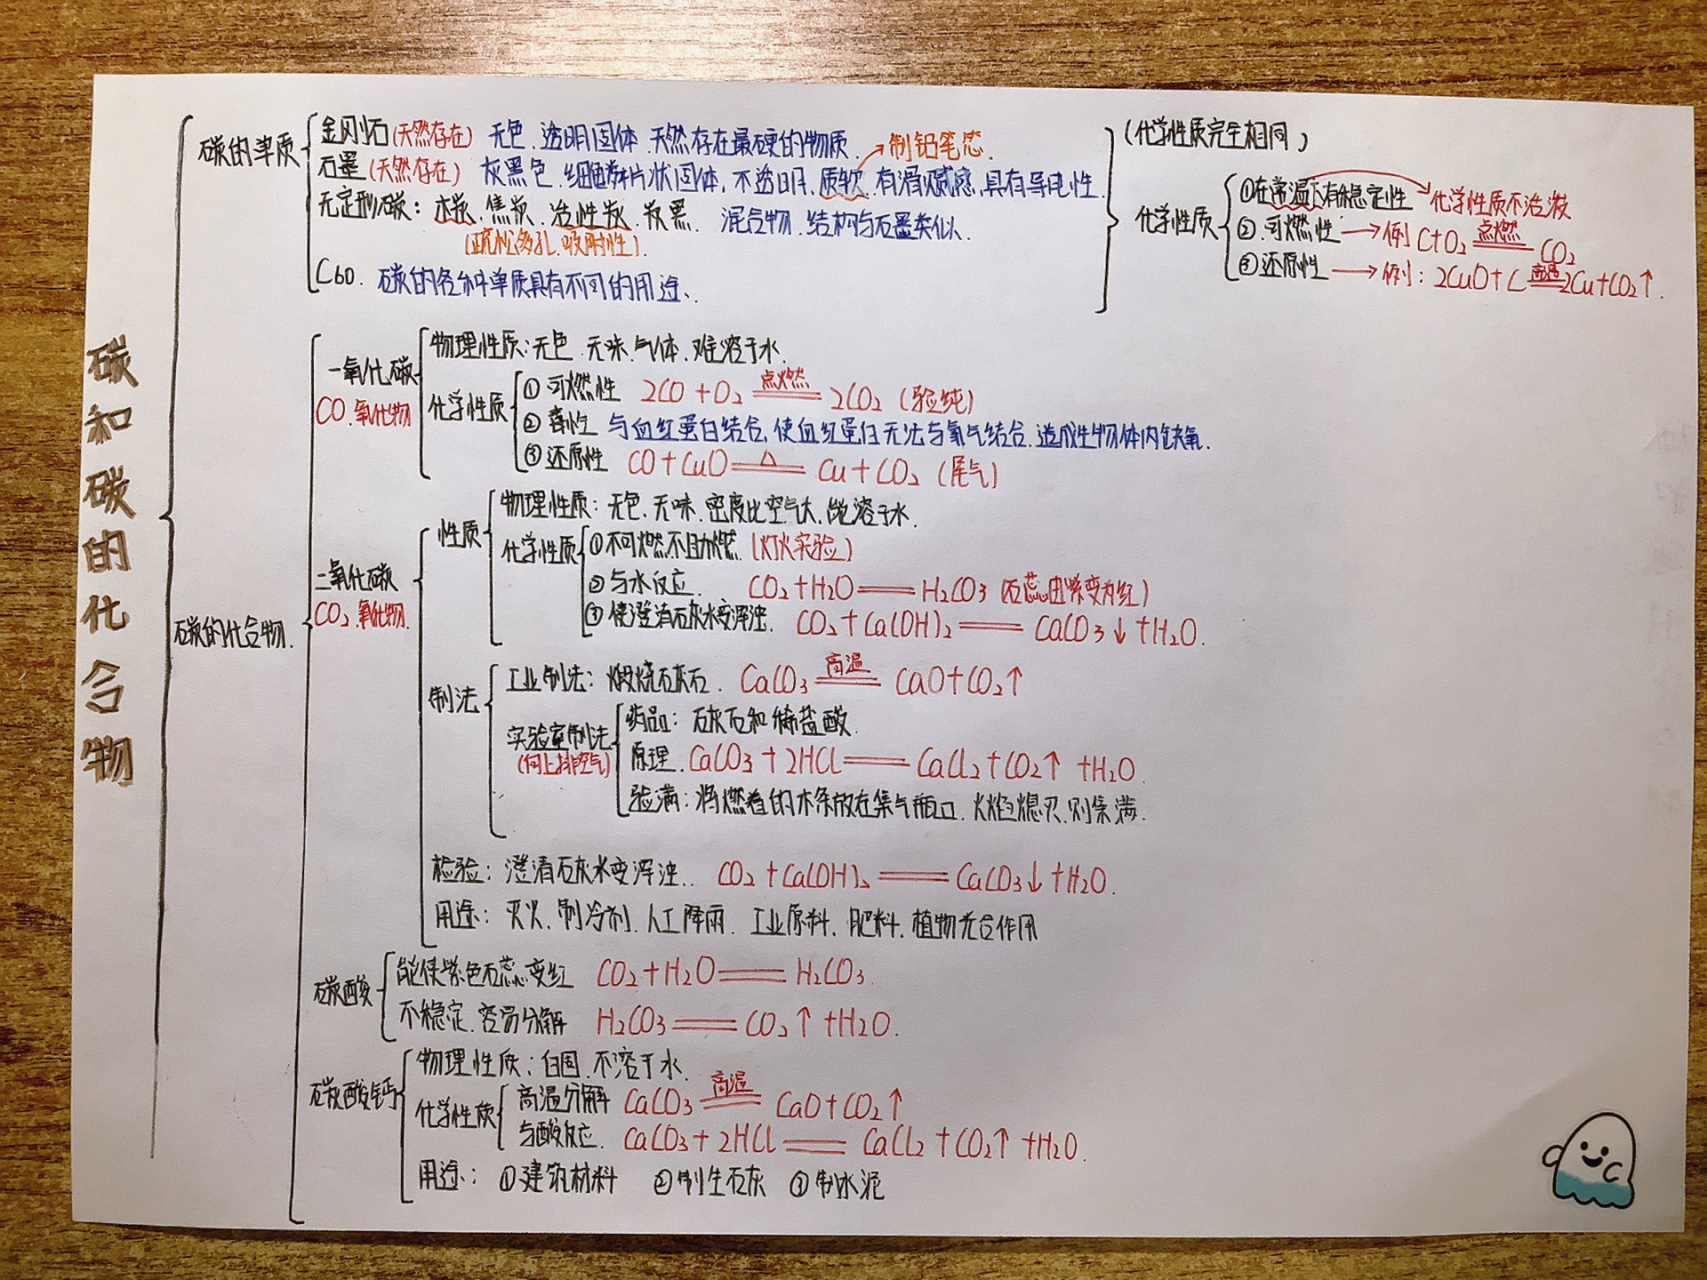 碳和碳的化合物
碳的单质
金刚石(天然存在) 无色.透明固体.天然存在最硬的物质.
石墨(天然存在) 灰黑色.细鳞片状固体,不透明,质软,有滑腻感,具有导电性.
制铅笔芯.
无定形碳:木炭.焦炭.活性炭.炭黑. 混合物.结构与石墨类似.
(疏松多孔.吸附性).
C60. 碳的各种单质具有不同的用途.
(化学性质完全相同)
化学性质
①在常温下有稳定性 化学性质不活泼
②.可燃性→例 C+O₂ 点燃══ CO₂
③还原性→例:2CuO+C 高温══ 2Cu+CO₂↑.
碳的化合物.
一氧化碳
CO.氧化物
物理性质:无色.无味.气体.难溶于水.
化学性质
①可燃性 2CO+O₂ 点燃══ 2CO₂ (验纯)
②毒性 与血红蛋白结合,使血红蛋白无法与氧气结合.造成生物体内缺氧.
③还原性 CO+CuO △══ Cu+CO₂ (尾气)
二氧化碳
CO₂.氧化物.
性质
物理性质:无色.无味.密度比空气大,能溶于水.
化学性质
①不可燃不助燃.(灯火实验)
②与水反应. CO₂+H₂O══H₂CO₃ (石蕊由紫变为红)
③使澄清石灰水变浑浊. CO₂+Ca(OH)₂══CaCO₃↓+H₂O.
制法
工业制法:煅烧石灰石. CaCO₃ 高温══ CaO+CO₂↑
实验室制法
(向上排空气)
药品:石灰石和稀盐酸.
原理.CaCO₃+2HCl══CaCl₂+CO₂↑+H₂O.
验满:将燃着的木条放在集气瓶口.火焰熄灭.则集满.
检验:澄清石灰水变浑浊.. CO₂+Ca(OH)₂══CaCO₃↓+H₂O.
用途:灭火.制冷剂.人工降雨.工业原料、肥料.植物光合作用
碳酸
能使紫色石蕊变红 CO₂+H₂O══H₂CO₃.
不稳定.容易分解 H₂CO₃══CO₂↑+H₂O.
碳酸钙
物理性质:白固.不溶于水.
化学性质
高温分解 CaCO₃ 高温══ CaO+CO₂↑
与酸反应. CaCO₃+2HCl══CaCl₂+CO₂↑+H₂O.
用途:①建筑材料 ②制生石灰 ③制水泥